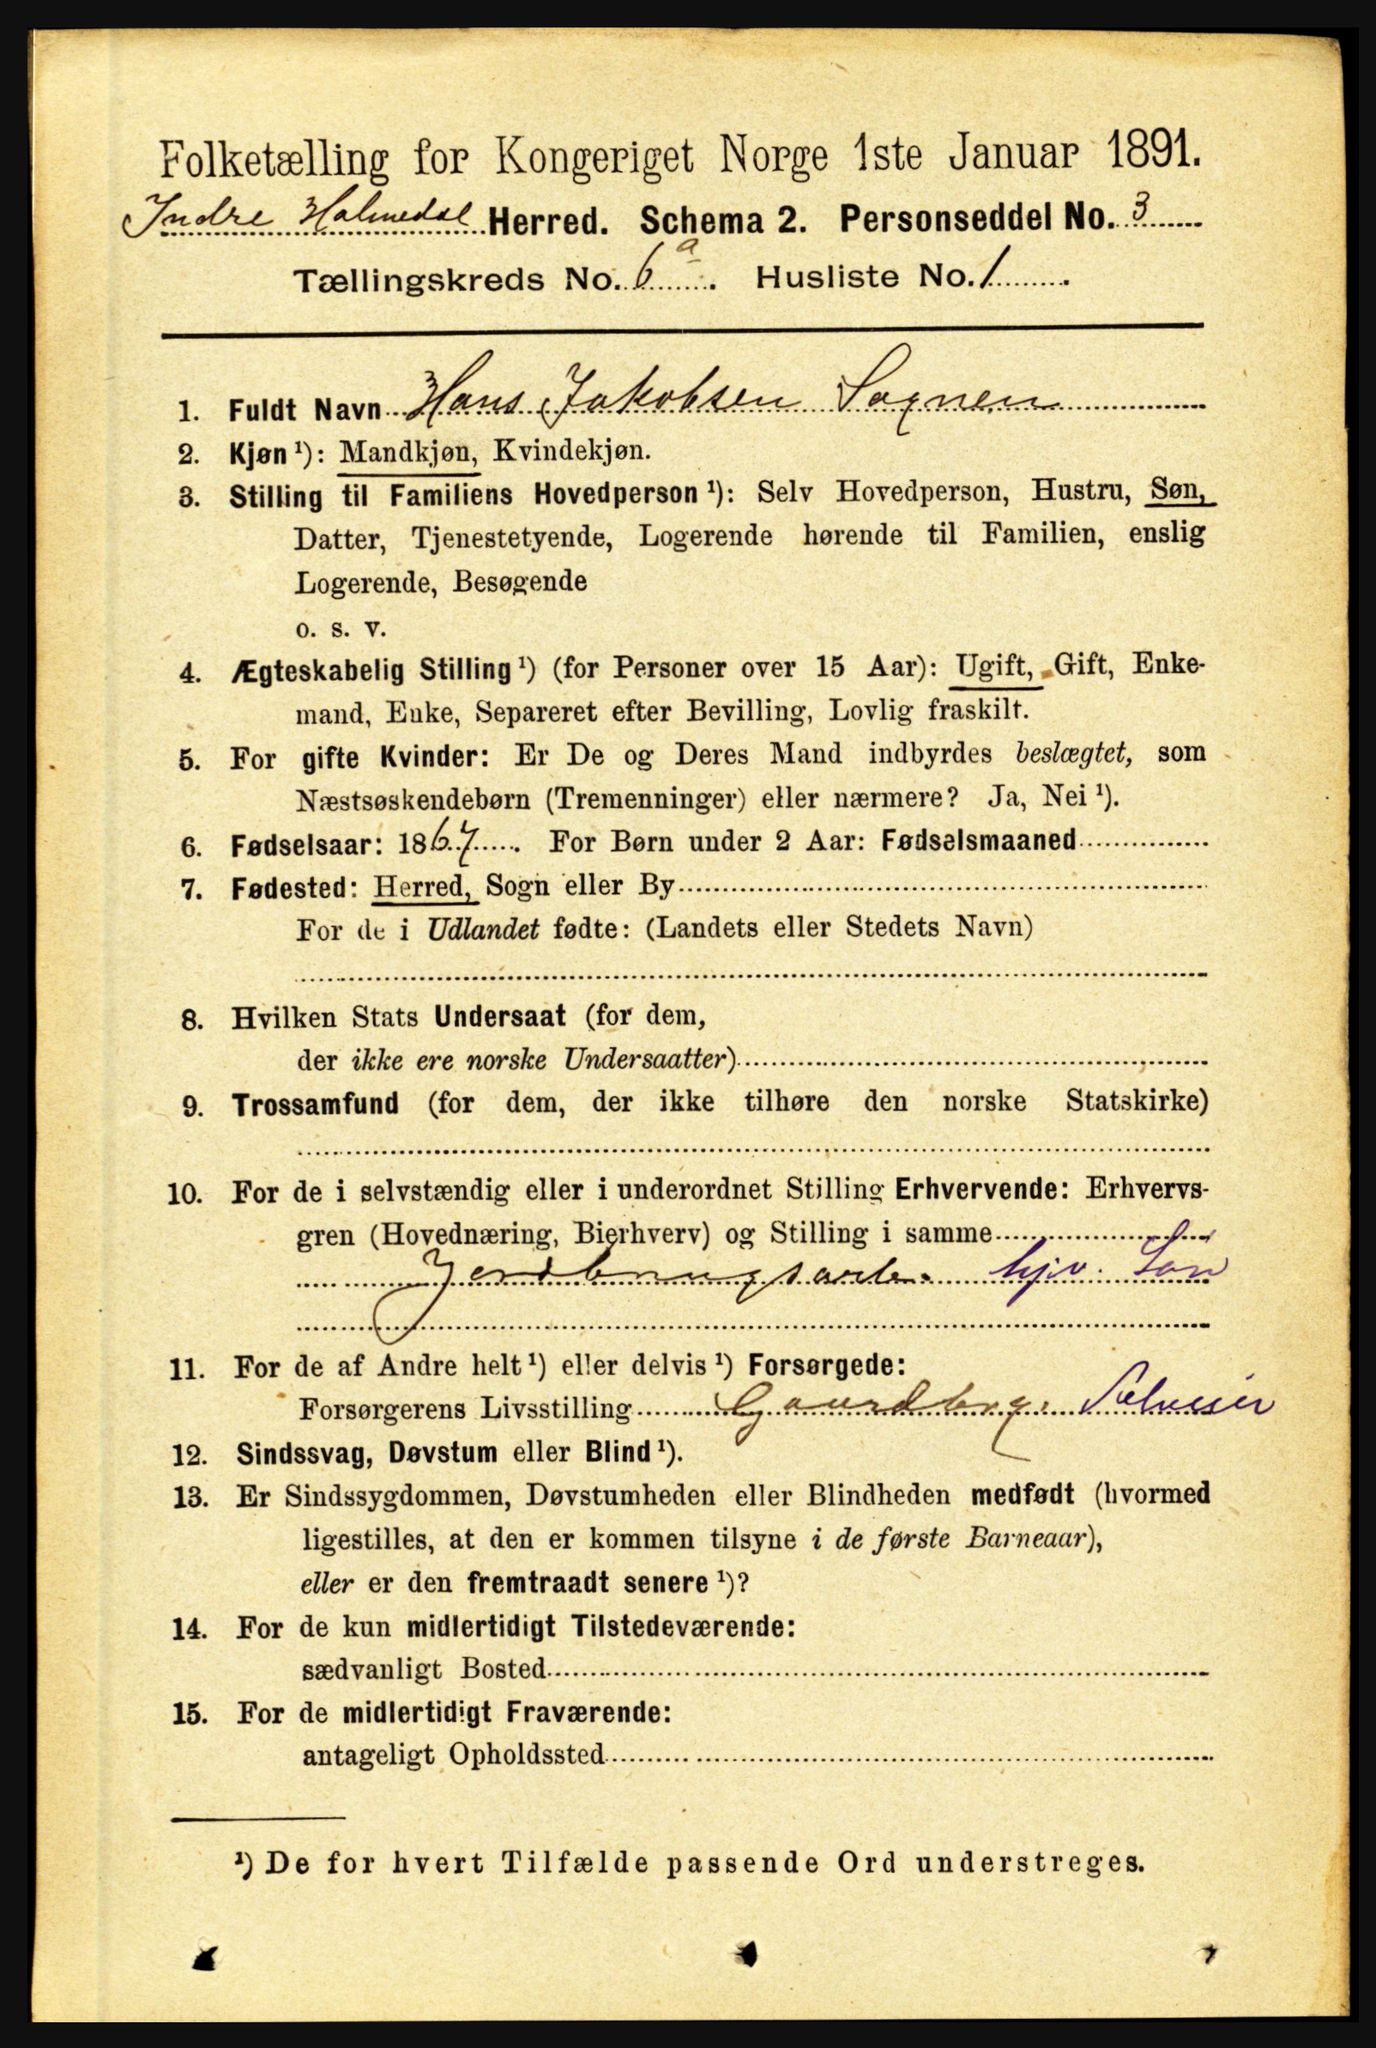 Folketælling for Kongeriget Norge 1ste Januar 1891.
Indre Holmedal Herred. Schema 2. Personseddel No. 3
Tællingskreds No. 6a. Husliste No. 1
1. Fuldt Navn Hans Jakobsen Sognen
2. Kjøn ¹): Mandkjøn, Kvindekjøn.
3. Stilling til Familiens Hovedperson ¹): Selv Hovedperson, Hustru, Søn,
Datter, Tjenestetyende, Logerende hørende til Familien, enslig
Logerende, Besøgende
o. s. v.
4. Ægteskabelig Stilling ¹) (for Personer over 15 Aar): Ugift, Gift, Enke-
mand, Enke, Separeret efter Bevilling, Lovlig fraskilt.
5. For gifte Kvinder: Er De og Deres Mand indbyrdes beslægtet, som
Næstsøskendebørn (Tremenninger) eller nærmere? Ja, Nei ¹).
6. Fødselsaar: 1867. For Børn under 2 Aar: Fødselsmaaned
7. Fødested: Herred, Sogn eller By
For de i Udlandet fødte: (Landets eller Stedets Navn)
8. Hvilken Stats Undersaat (for dem,
der ikke ere norske Undersaatter)
9. Trossamfund (for dem, der ikke tilhøre den norske Statskirke)
10. For de i selvstændig eller i underordnet Stilling Erhvervende: Erhvervs-
gren (Hovednæring, Bierhverv) og Stilling i samme
Jordbrugsarb. hjv. Søn
11. For de af Andre helt ¹) eller delvis ¹) Forsørgede:
Forsørgerens Livsstilling Gaardbrg. Selveier
12. Sindssvag, Døvstum eller Blind ¹).
13. Er Sindssygdommen, Døvstumheden eller Blindheden medfødt (hvormed
ligestilles, at den er kommen tilsyne i de første Barneaar),
eller er den fremtraadt senere ¹)?
14. For de kun midlertidigt Tilstedeværende:
sædvanligt Bosted
15. For de midlertidigt Fraværende:
antageligt Opholdssted
¹) De for hvert Tilfælde passende Ord understreges.